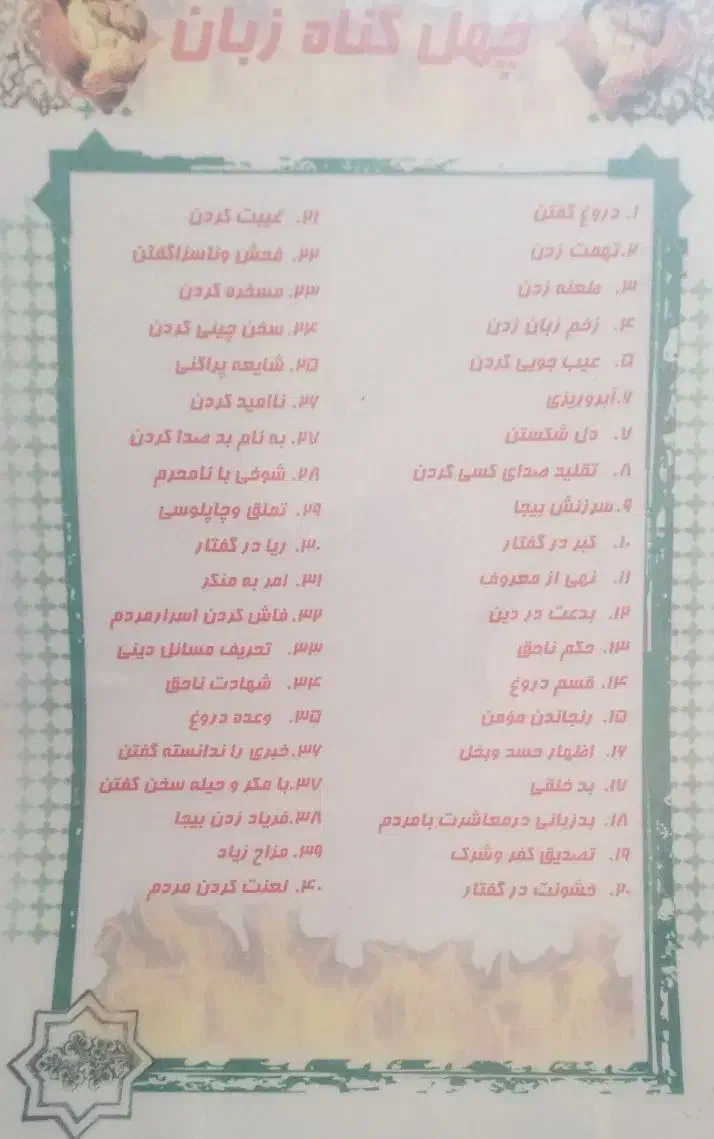 چهل گناه زبان
۱. دروغ گفتن
۲.تهمت زدن
۳. طعنه زدن
۴. زخم زبان زدن
۵. عیب جویی کردن
۶.آبروریزی
۷. دل شکستن
۸. تقلید صدای کسی کردن
۹.سرزنش بیجا
۱۰. کبر در گفتار
۱۱. نهی از معروف
۱۲. بدعت در دین
۱۳. حکم ناحق
۱۴. قسم دروغ
۱۵. رنجاندن مؤمن
۱۶. اظهار حسد وبخل
۱۷. بد خلقی
۱۸. بدزبانی درمعاشرت بامردم
۱۹. تصدیق کفر وشرک
۲۰. خشونت در گفتار
۲۱. غیبت کردن
۲۲. فحش وناسزاگفتن
۲۳. مسخره کردن
۲۴. سخن چینی کردن
۲۵. شایعه پراکنی
۲۶. ناامید کردن
۲۷. به نام بد صدا کردن
۲۸. شوخی با نامحرم
۲۹. تملق وچاپلوسی
۳۰. ریا در گفتار
۳۱. امر به منکر
۳۲. فاش کردن اسرارمردم
۳۳. تحریف مسائل دینی
۳۴. شهادت ناحق
۳۵. وعده دروغ
۳۶.خبری را ندانسته گفتن
۳۷.با مکر و حیله سخن گفتن
۳۸.فریاد زدن بیجا
۳۹. مزاح زیاد
۴۰. لعنت کردن مردم